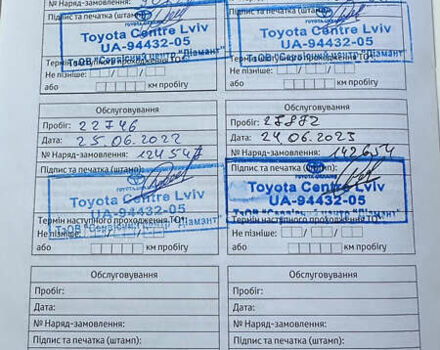 № Наряд-замовлення:
№ Наряд-замовлення:
Підпис та печатка (штамп)
Підпис та печатка (штамп)
Toyota Centre Lviv
UA-94432-05
ТзОВ "Сервісний центр "Діамант"
Термін наступного проходження ТО
Не пізніше:
або км пробігу
Toyota Centre Lviv
UA-94432-05
ТзОВ "Сервісний центр "Діамант"
Термін наступного проходження ТО
Не пізніше:
або км пробігу
Обслуговування
Пробіг: 22746
Дата: 25.06.2022
№ Наряд-замовлення:
Підпис та печатка (штамп):
Toyota Centre Lviv
UA-94432-05
ТзОВ "Сервісний центр "Діамант"
Термін наступного проходження ТО
Не пізніше:
або км пробігу
Обслуговування
Пробіг:
Дата: 24.06.2023
№ Наряд-замовлення: 142654
Підпис та печатка (штамп):
TOYOTA-UKRAINE
Toyota Centre Lviv
UA-94432-05
ТзОВ "Сервісний центр "Діамант"
Термін наступного проходження ТО
Не пізніше:
або км пробігу
Обслуговування
Пробіг:
Дата:
№ Наряд-замовлення:
Підпис та печатка (штамп):
Обслуговування
Пробіг:
Дата:
№ Наряд-замовлення:
Підпис та печатка (штамп):